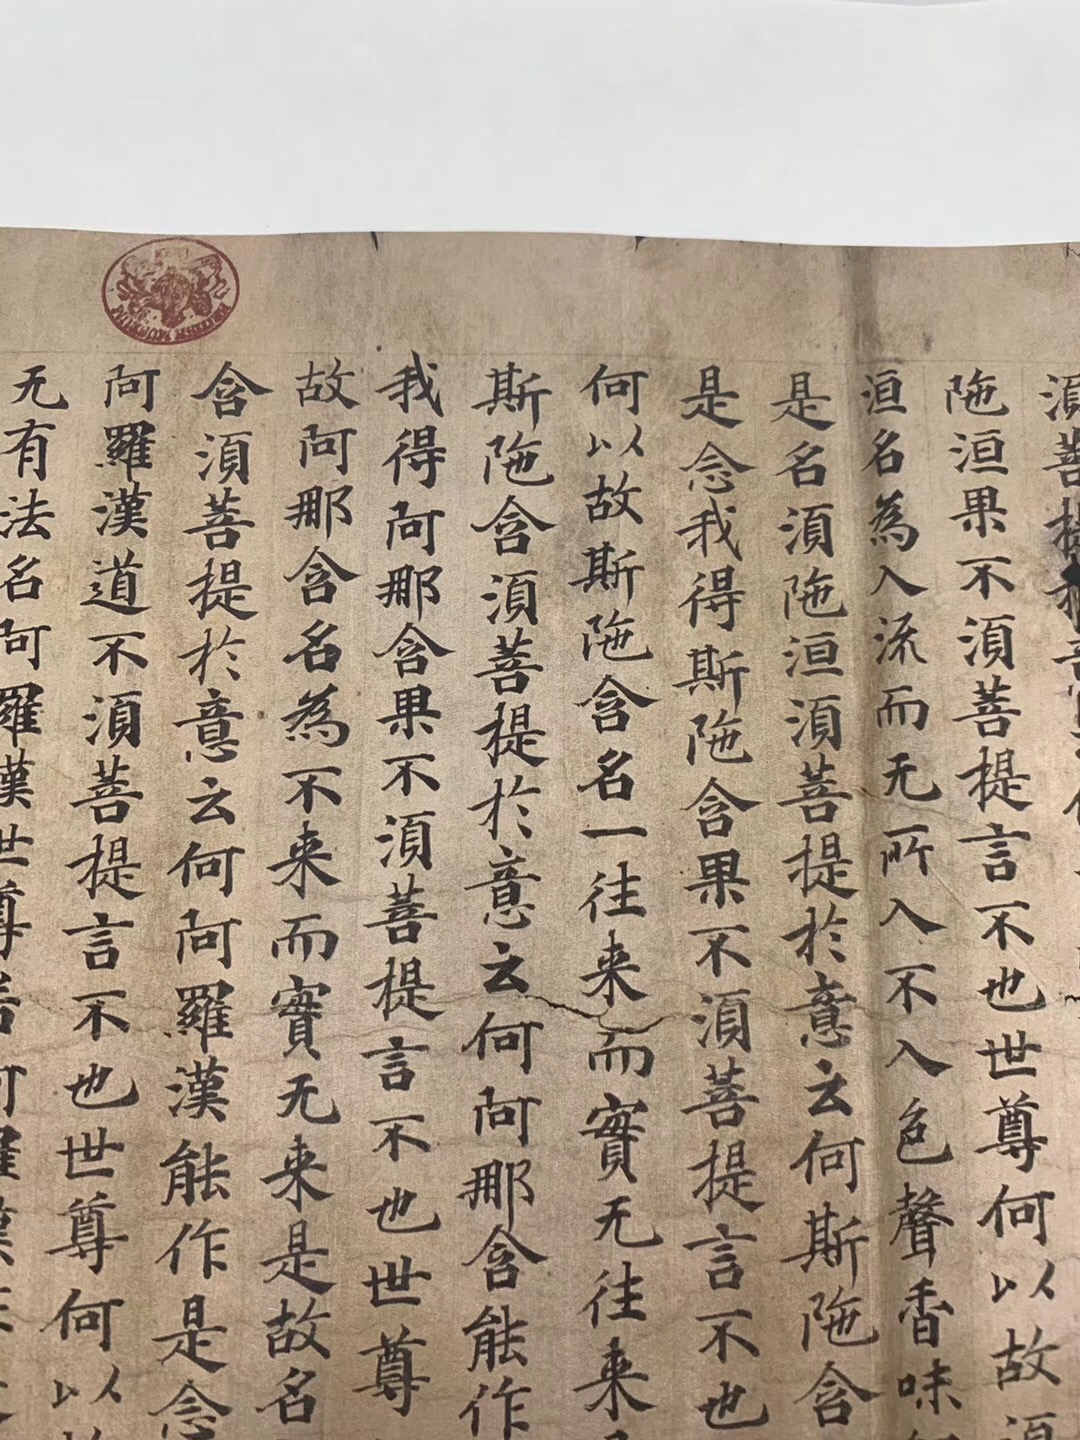 須菩提
陁洹果不須菩提言不也世尊何以故須
洹名為入流而无所入不入色聲香味
是名須陁洹須菩提於意云何斯陁含
是念我得斯陁含果不須菩提言不也
何以故斯陁含名一往来而實无往来
斯陁含須菩提於意云何阿那含能作
我得阿那含果不須菩提言不也世尊
故阿那含名為不来而實无来是故名
含須菩提於意云何阿羅漢能作是念
阿羅漢道不須菩提言不也世尊何以
无有法名阿羅漢世尊若阿羅漢
BRITISH MUSEUM